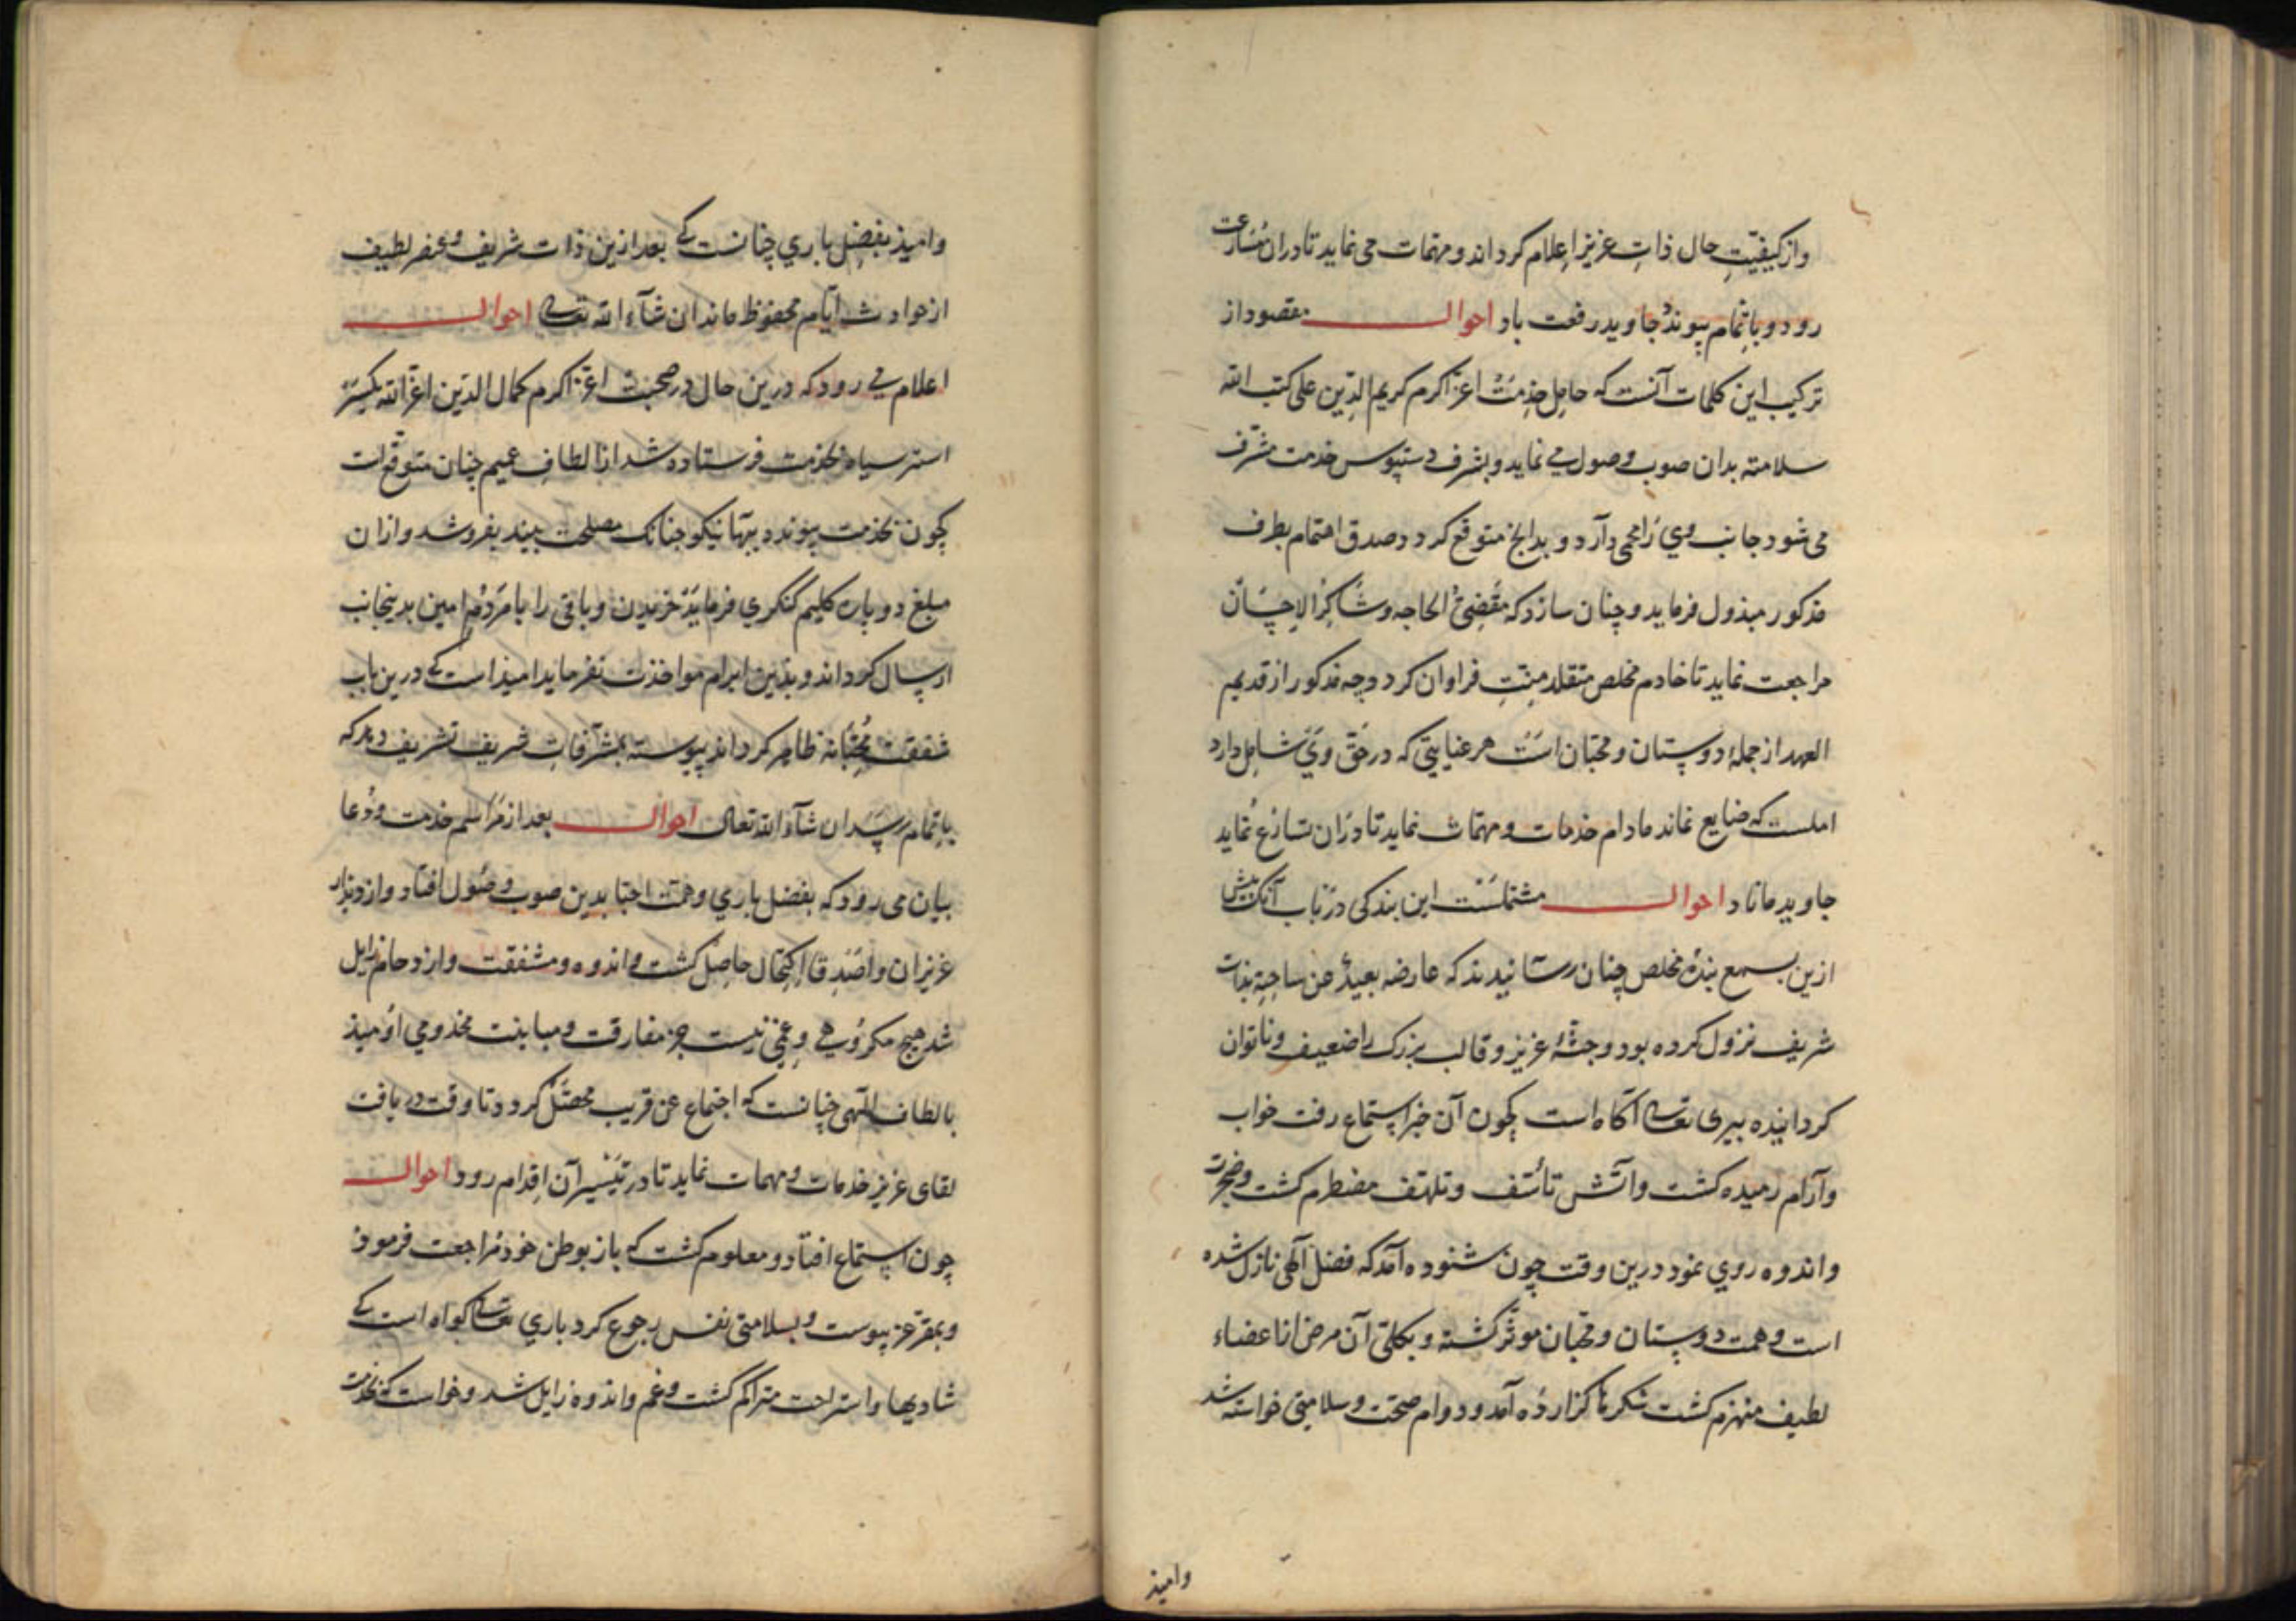 واز کیفیّتِ حال ذاتِ عزیز اِعلام کرداند و مهمّات می نماید تا دران مُسَارعت
رود و باتِمام پیوندْ جاوید رفعت باد احوال مقصود از
ترکیب این کلمات آنست که حامِل خذِمَتْ اعزّ اکرم کریم الدّین علی کتب الله
سلامته بدان صوب وصول می نماید و بشرف دستبوس خدمت مشرّف
می شود جانب وی رَا محمی دارد و بدانچ متوقع کردد صدق اهتمام بطرف
مذکور مبذول فرماید و چنان سازد که مَقْضِیُّ الحاجه و شاکرُ الاِحسَان
مراجعت نماید تا خادم مخلص متقلد مِنّتِ فراوان کردد وجه مذکور از قدیم
العهد از جملهٔ دوستان و محبّان است هر عنایتی که در حَقّ وَیْ شامِل دارد
املست که ضایع نماند مادام خدمات و مهمّات نماید تا دَران تسارُع نُماید
جاوید ماناد احوال مشتملست این بندکی دَر باب آنک پیش
ازین بسمع بندهٔ مخلص چنان رسَانیدند که عارضه بعیدٌ عن ساحتِهِ بذات
شریف نزول کرده بود و جثّهٔ عزیز و قالب بزرک را ضعیف و ناتوان
کردانیده بیری تعالی آکاه است چون آن خبر استماع رفت خواب
و آرام رمیده کشت و آتش تأسّف و تلهّف مضطرم کشت و ضجرت
و اندوه روی نمود درین وقت چون شنوده آمَد که فضل آلهی نازل شده
است و همت دوستان و محبان موثّر کشته و بکلی آن مرض از اعضاء
لطیف منهزم کشت شکرها کزاردَه آمد و دوام صحّت و سلامتی خواسته شد
وامیذ
وامیذ بفضل باری چنانست کی بعد ازین ذات شریف و عنصر لطیف
از حوادث ایّام محفوظ ماند ان شآء الله تعالی احوال
اعلام می رود که درین حال در صحبت اعزّ اکرم کمال الدّین اعزّ الله یکسر
استر سیاه بخدمت فرستاده شد از الطافِ عمیم چنان متوقّع است
چون بخدمت پیوندد ببهَا نیکو چنانک مصلحت بیند بفروشد و ازان
مبلغ دو پاره کلیم کنکری فرمایَدْ خریدن و باقی را با مَردُم امین بدینجانب
ارسال کرداند و بذین ابرام مواخذت نفرماید امیذ است کی درین باب
شفقت مُحِبّانه ظاهر کرداند پیوسته بمشرّفات شریف تشریف دهد که
باتمام رسَد ان شآء الله تعالی احوال بعد از مَراسم خدمت و دُعا
بیان می رود که بفضل باری و همّت احبّا بدین صوب وصُول افتاد و از دیذار
عزیزان و اَصْدِقا اِکتِحال حاصِل کشت و اندوه و مشقت و ازدحام زایل
شد هیچ مکرُوهی و غمّی نیست جز مفارقت و مباینت مخدومی اوُمیذ
بالطاف الٓهی چنانست که اجتماع عن قریب محصّل کردد تا وقت دریافت
لقای عزیز خدمات و مهمات نماید تا در تیسیر آن اِقدام رود احوال
چون استماع افتاد و معلوم کشت که باز بوطن خود مراجعت فرموذ
و بمقر عز پیوست و بسلامتی نفس رجوع کرد باری تعالی کواه است کی
شادیها و استراحت متراکم کشت و غم و اندوه زایل شد و خواست که بخدمت